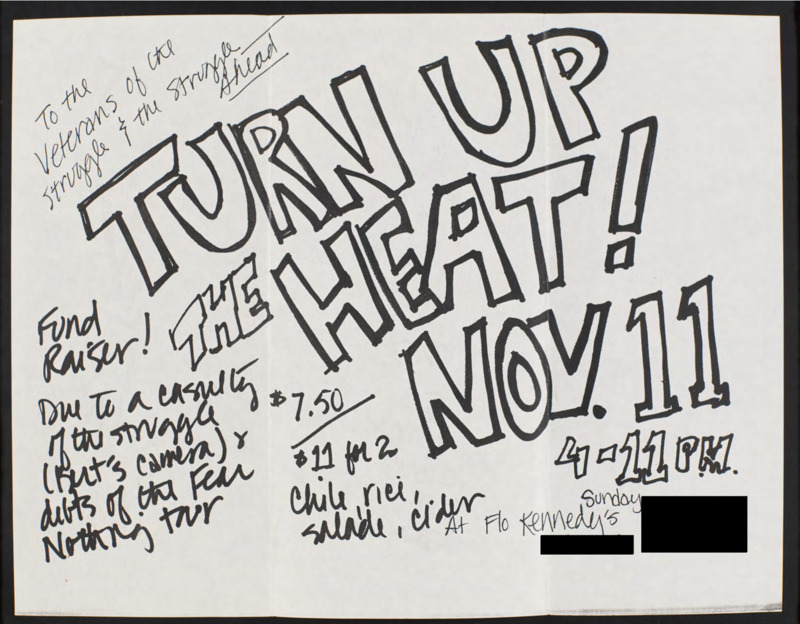 To the
Veterans of the
struggle & the struggle
Ahead
TURN UP
THE HEAT!
NOV. 11
4-11 P.M.
Sunday
At Flo Kennedy's
Fund
Raiser!
Due to a casualty
of the struggle
(Burt's camera) &
debts of the Fear
Nothing tour
$7.50
$11 for 2
Chile, rice,
salade, cider